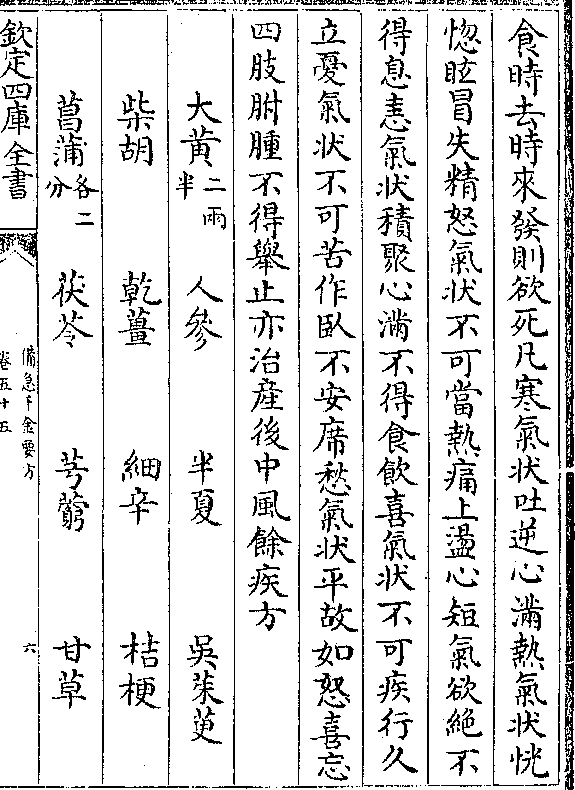 食時去時來發則欲死凡寒氣狀吐逆心滿熱氣狀恍
惚眩冒失精怒氣狀不可當熱痛上盪心短氣欲絕不
得息恚氣狀積聚心滿不得食飲喜氣狀不可疾行久
立憂氣狀不可苦作臥不安席愁氣狀平故如怒喜忘
四肢胕腫不得舉止亦治產後中風餘疾方
大黃二兩半 人參 半夏 吳茱萸
柴胡 乾薑 細辛 桔梗
菖蒲各二分 茯苓 芎藭 甘草
欽定四庫全書
備急千金要方
卷五十五
六